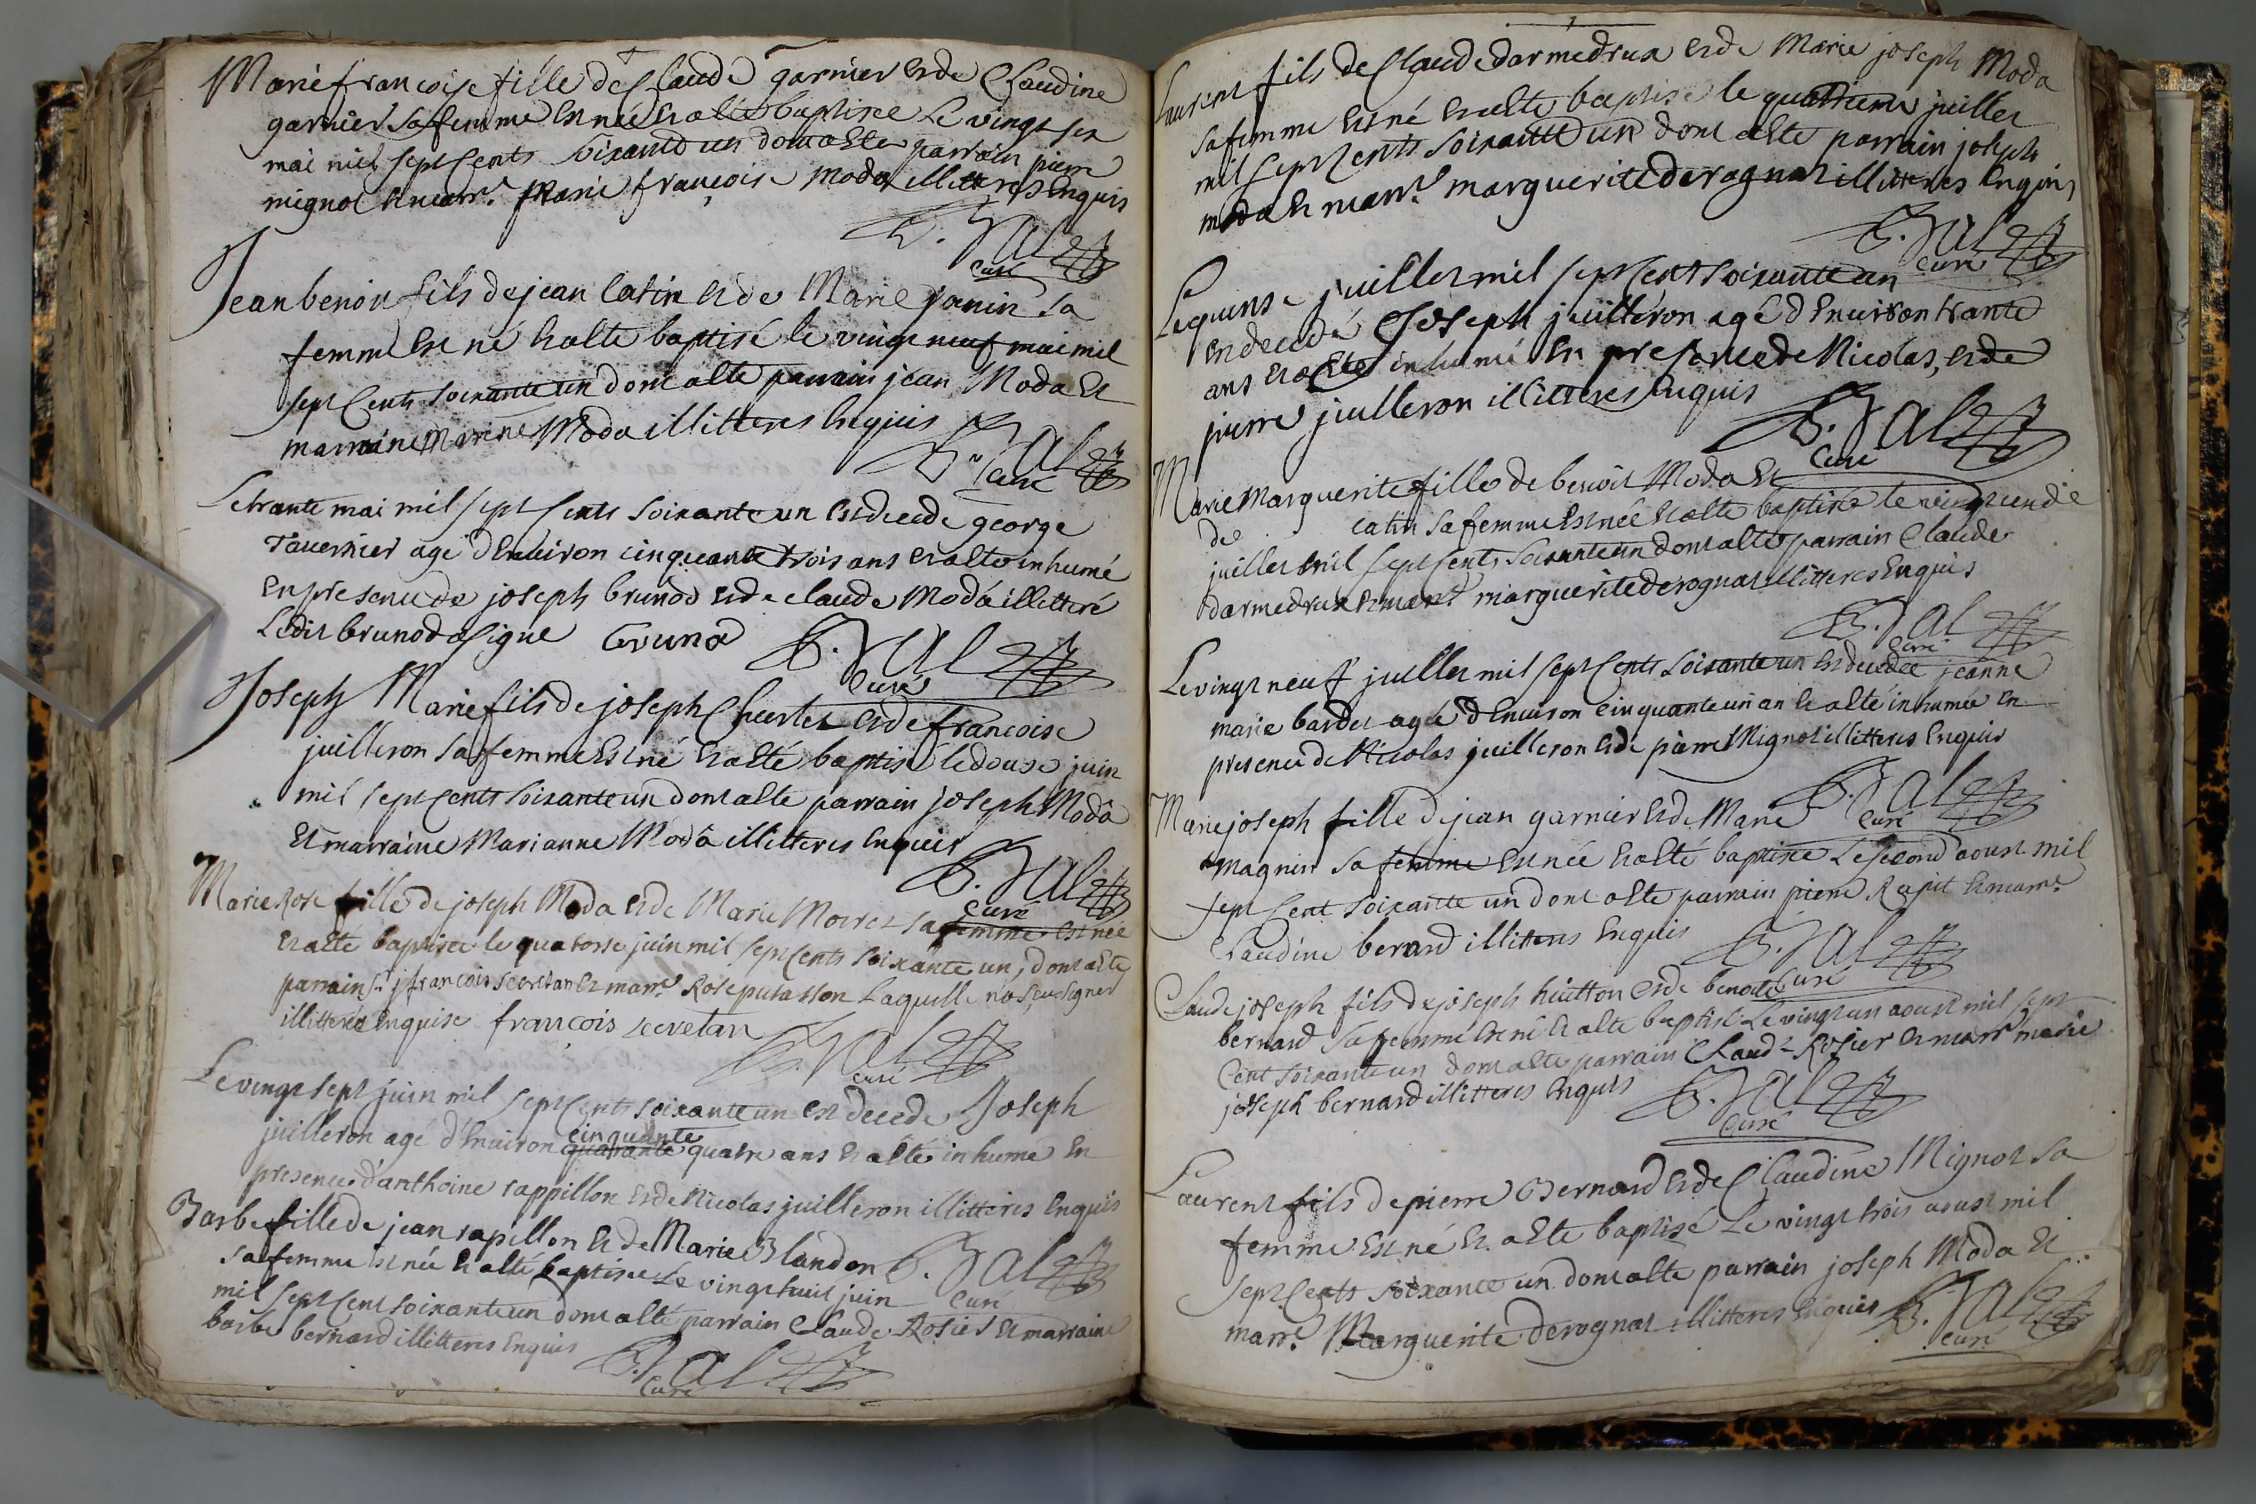 Marie francoise fille de Claude garnier et de Claudine
garnier sa femme est née et a été baptisée Le vingt six
mai mil sept Cents soixante un dont a été parrain pierre
mignot et marr.e Marie francoise moda illitteres Enquis
B. Jal
curé
Jean benoit fils de jean Catin et de Marie janin sa
femme Est né Et a été baptisé le vingt neuf mai mil
sept Cents soixante un dont a été parrain jean Moda Et
marraine Moda illitteres Enquis
B. Jal
curé
Le trante mai mil sept Cents soixante un est decede george
Tavernier agé d'Environ cinquante trois ans et a été inhumé
en presence de joseph brunod et de claude Moda illitteré
Ledit brunod a signe Bruno B. Jal
Curé
Joseph Marie fils de joseph et de francoise
juilleron sa femme Est né Et a été baptisé le douse juin
mil sept Cents soixante un dont a été parrain joseph Moda
Et marraine Marianne Moda illitteres Enquis
B. Jal
Curé
Marie Rose fille de joseph Moda et de Marie Moret sa femme est née
Et a été baptisée le quatorse juin mil sept Cents soixante un, dont a été
parrain s.r francois secretan et marr.e Rose putasson Laquelle n'a sçeu signer
illitterée Enquise francois secretan
B. Jal
curé
Le vingt sept juin mil sept Cents soixante un est decede Joseph
cinquante
juilleron agé d'Environ quarante quatre ans Et a été inhumé En
presence d'anthoine rappillon et de Nicolas juilleron illitteres Enquis
Barbe fille de jean rapillon Et de Marie Blandon B. Jal
sa femme est née Et a été baptisée Le vingt huit juin Curé
mil sept Cent soixante un dont a été parrain Claude Rosier Et marraine
barbe bernard illitteres Enquis
B. Jal
Curé
Laurent fils de Claude darmedrux et de Marie joseph Moda
sa femme Est né Et a été baptisé le quatrieme juillet
mil sept Cents soixante un dont a été parrain joseph
moda et marr.e marguerite derognat illitteres Enquis
B. Jal
curé
Le quinse juillet mil sept Cent soixante un
est decedé Joseph juilleron agé d'Environ trante
ans Et a été inhumé En presence de Nicolas, et de
pierre juilleron illitteres Enquis
B. Jal
Curé
Marie Marguerite fille de benoit Moda Et
de catin sa femme est née Et a été baptisée le
juillet mil sept Cents soixante un dont a été parrain Claude
darmedrux et marr.e marguerite derognat illitteres Enquis
B. Jal
Curé
Le vingt neuf juillet mil sept Cents soixante un est decedée jeanne
marie bardet agée d'Environ cinquante un an Et a été inhumée En
presence de Nicolas juilleron et de pierre Mignot illitteres Enquis
B. Jal
Marie joseph fille de jean garnier et de Marie Curé
magnin sa femme Est née Et a été baptisée Le second aoust mil
sept Cent soixante un dont a été parrain pierre Rapit et marr.e
Claudine berard illitteres Enquis B. Jal
Curé
Claude joseph fils de joseph huitton et de benoite
bernard sa femme Est né Et a été baptisé Le vingt un aoust mil sept
Cent soixante un dont a été parrain Claude Rosier et marr.e marie
joseph bernard illitteres Enquis B. Jal
Curé
Laurent fils de pierre Bernard et de Claudine Mignot sa
femme Est né Et a Eté baptisé Le vingt trois aoust mil
sept Cents soixante un dont a été parrain joseph Moda Et
marr.e Marguerite derognat illitteres Enquis B. Jal
curé